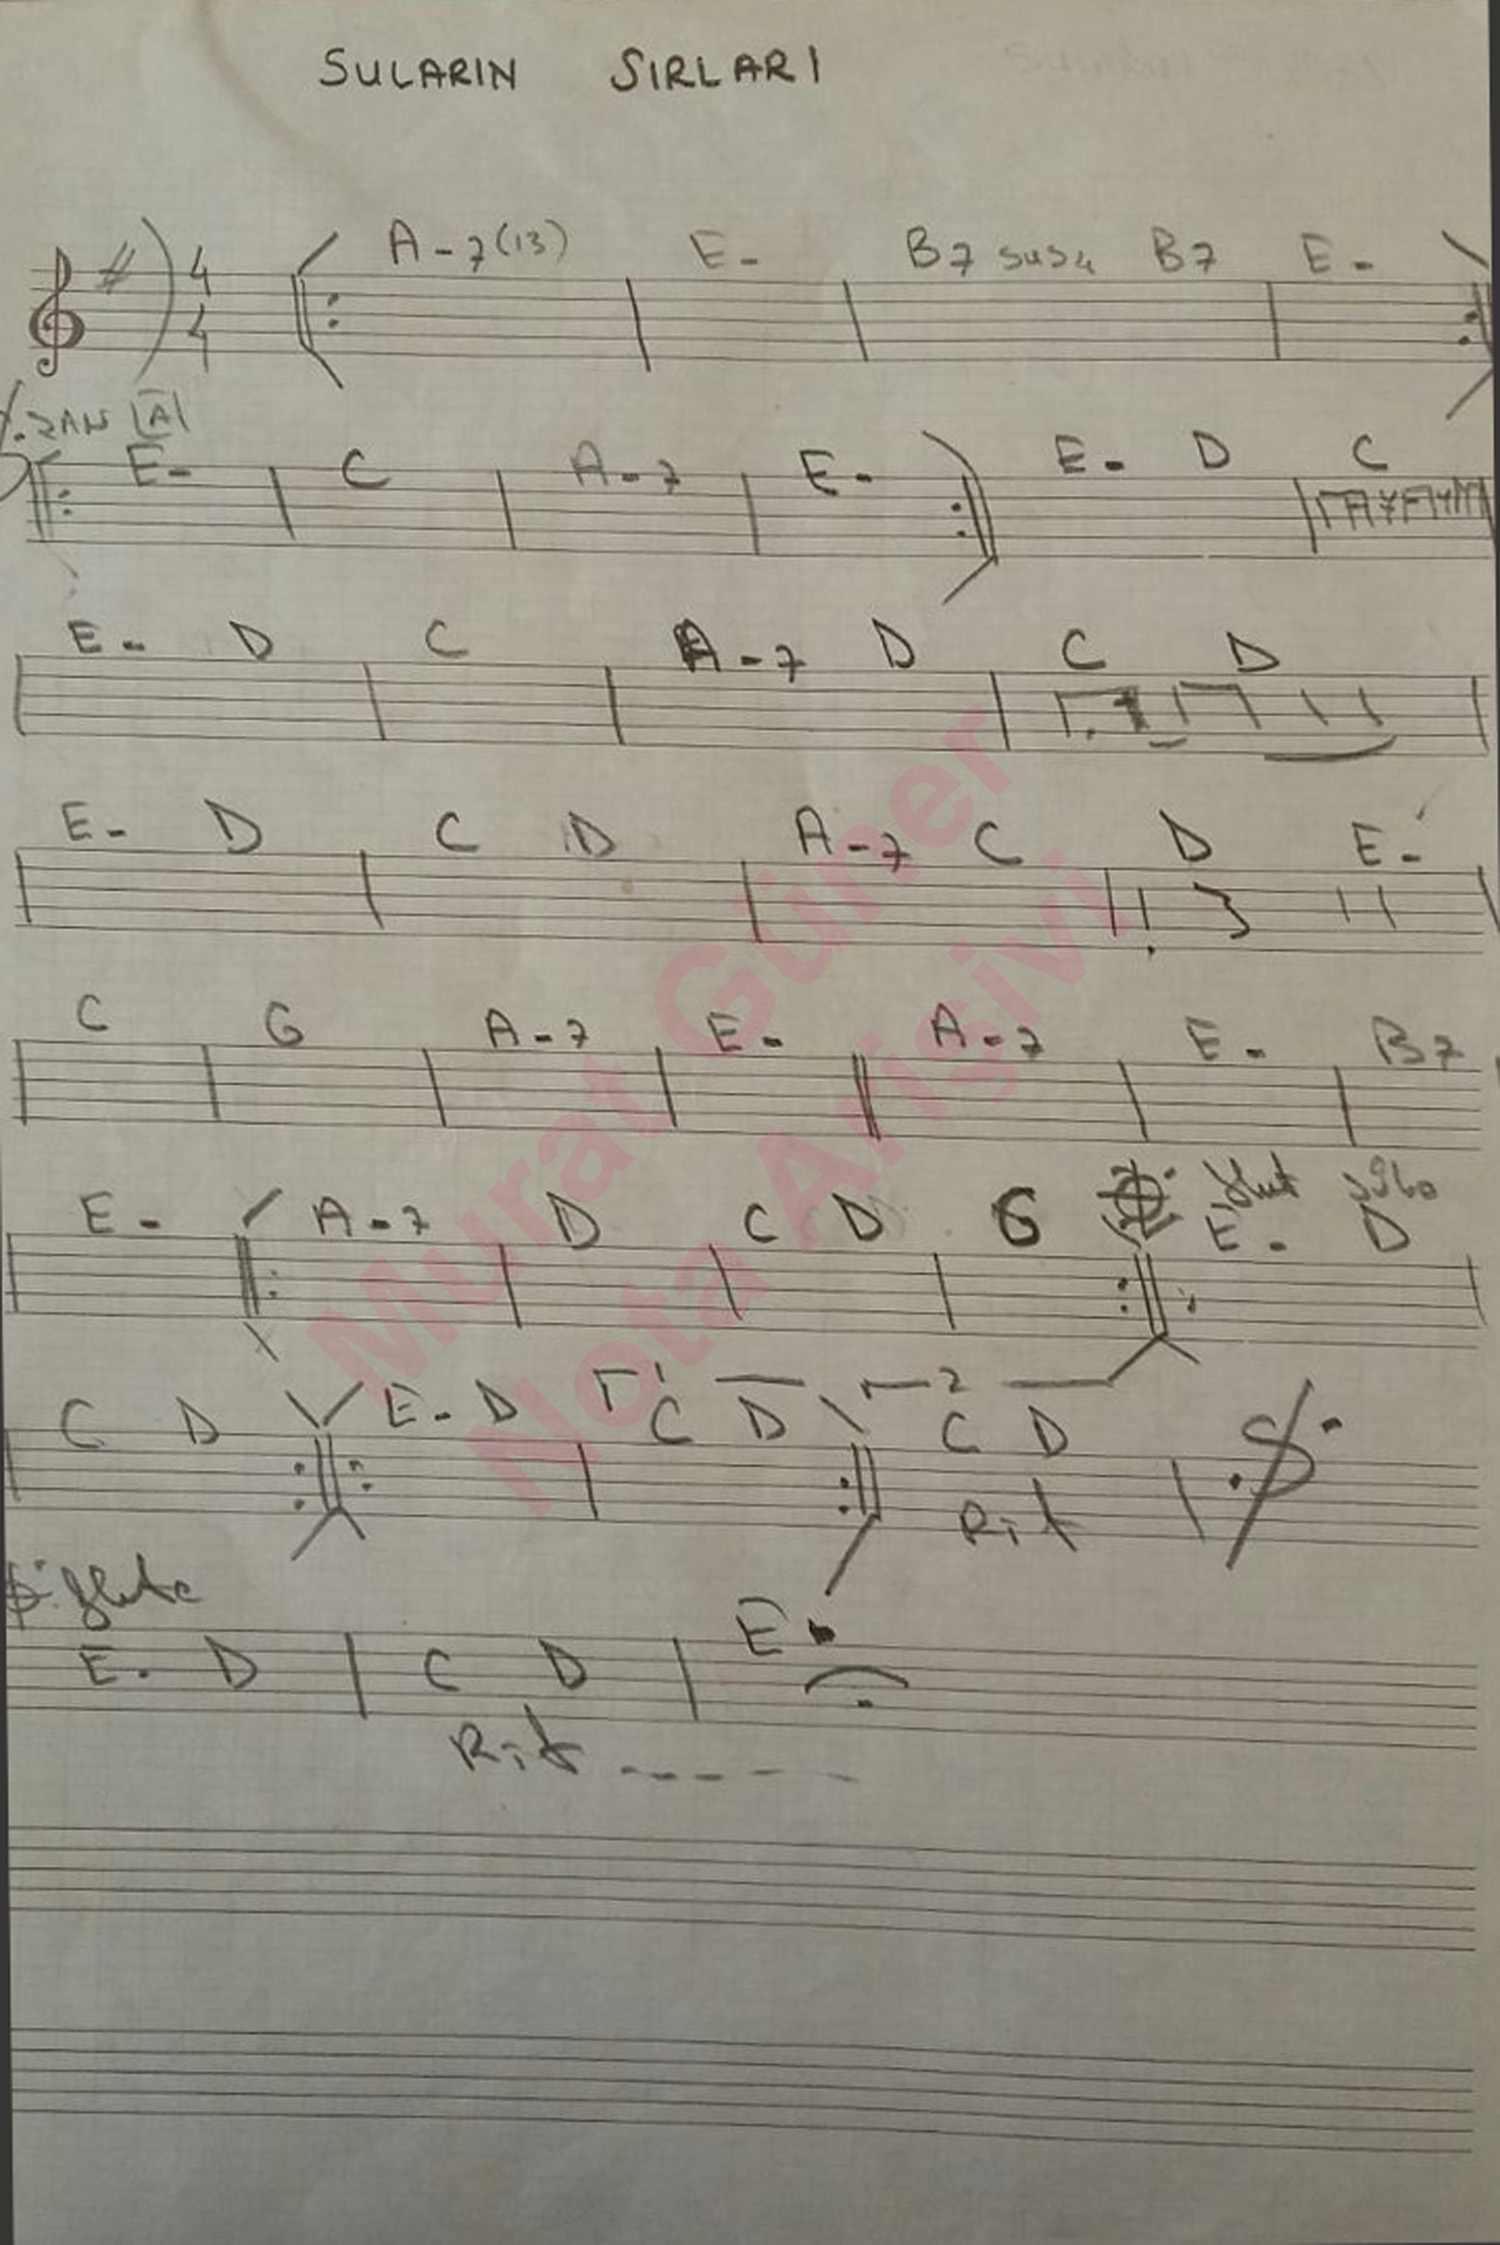 SULARIN SIRLARI
4
4
A-7(13) E- B7 sus4 B7 E-
A
E- C A-7 E- E- D C
E- D C A-7 D C D
E- D C D A-7 C D E-
C G A-7 E- A-7 E- B7
E- A-7 D C D G E- D
1 2
C D E- D C D C D
Rit
flute
E- D C D E-
Rit
Murat Güner
Nota Arişivi